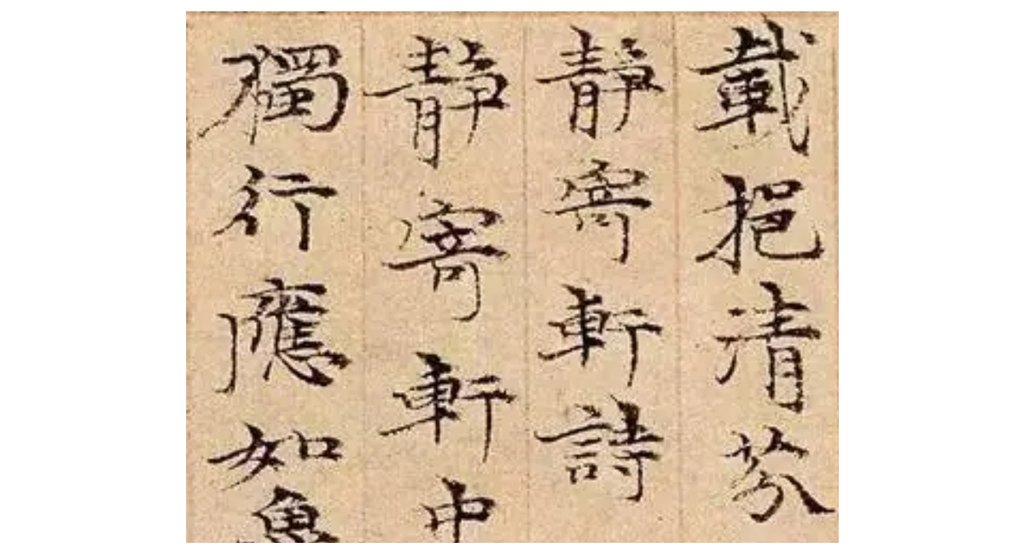 載挹清芬
静寄軒詩
静寄軒中
獨行應如魯